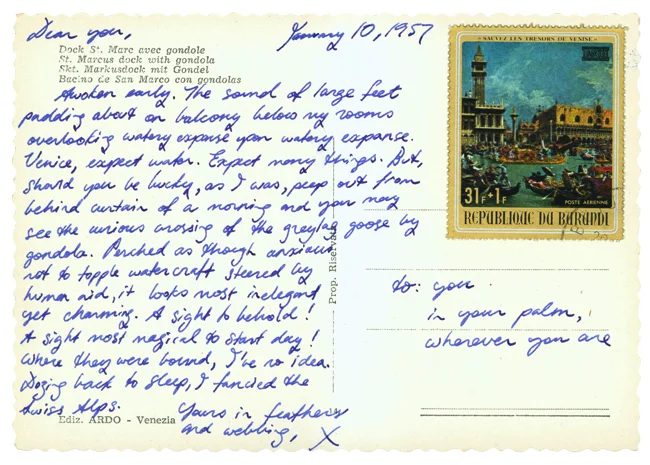 Dear you,
January 10, 1957
Dock St. Marc avec gondole
St. Marcus dock with gondola
Skt. Markusdock mit Gondel
Bacino de San Marco con gondolas
Awoken early. The sound of large feet
padding about on balcony below my rooms
overlooking watery expanse upon watery expanse.
Venice, expect water. Expect many things. But,
should you be lucky, as I was, peep out from
behind curtain of a morning and you may
see the curious crossing of the greylag goose by
gondola. Perched as though anxious
not to topple watercraft steered by
human aid, it looks most inelegant
yet charming. A sight to behold!
A sight most magical to start day!
Where they were bound, I've no idea.
Dozing back to sleep, I fancied the
Swiss Alps.
Yours in feathers
and webbing, X
Ediz. ARDO - Venezia
Prop. Riservata
SAUVEZ LES TRESORS DE VENISE
31F+1F
POSTE AERIENNE
REPUBLIQUE DU BURUNDI
to: you
in your palm,
wherever you are